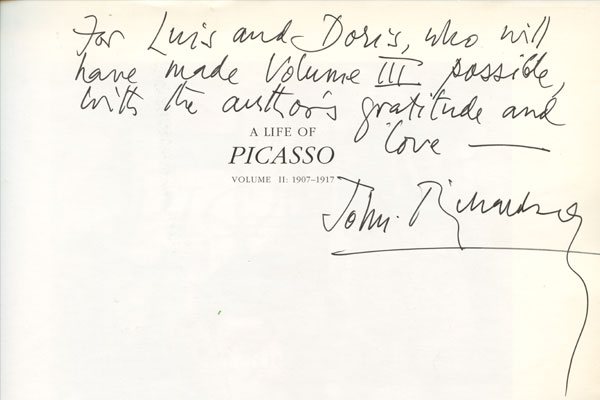 For Luis and Doris, who will
have made Volume III possible,
with the author's gratitude and
love —
A LIFE OF
PICASSO
VOLUME II: 1907–1917
John. Richardson